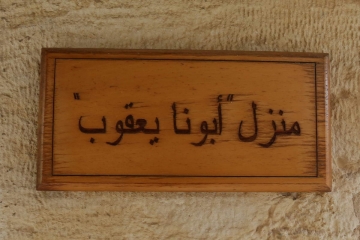 منزل "أبونا يعقوب"